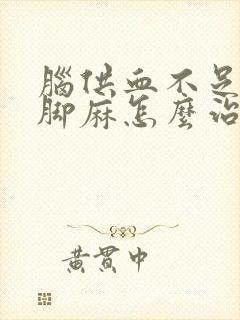 腦供血不足
腳麻怎麼治
黃貫中